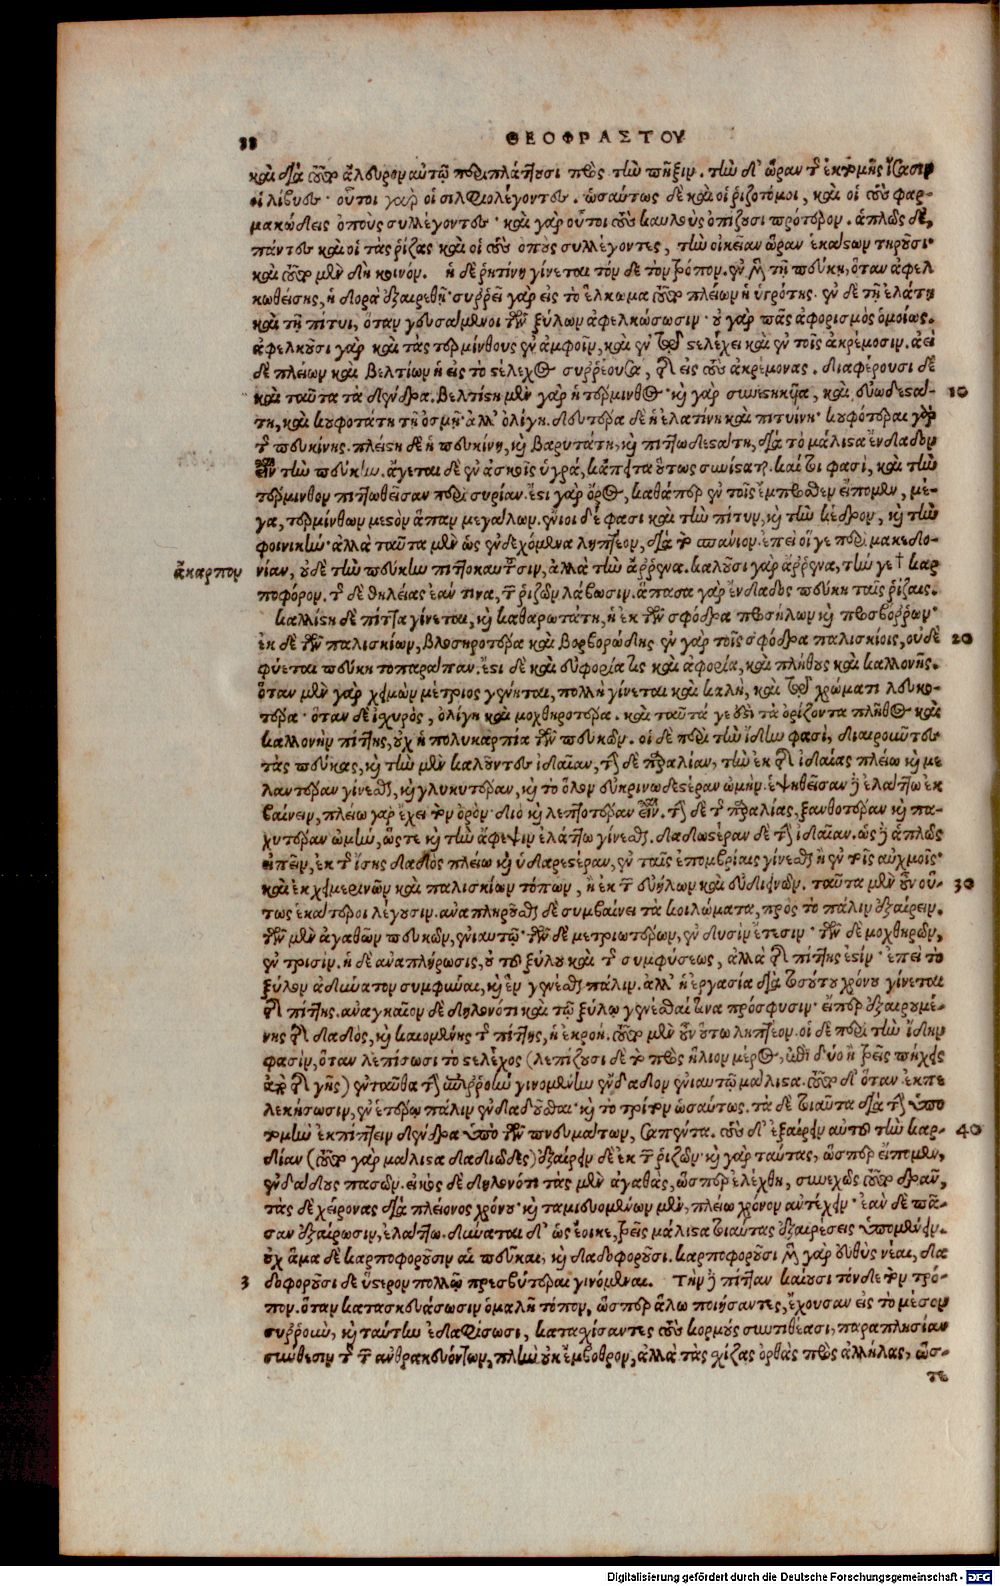 33
ΘΕΟΦΡΑΣΤΟΥ
καὶ διὰ τοῦτο ἄλευρον αὐτῷ περιπλάττουσι πρὸς τὴν πῆξιν. τὴν δ' ὥραν τῆς ἐκτομῆς ἴσασιν
οἱ λίβυες· οὗτοι γὰρ οἱ σίλφιον λέγοντες. ὡσαύτως δὲ καὶ οἱ ῥιζοτόμοι, καὶ οἱ τοὺς φαρ-
μακώδεις ὀποὺς συλλέγοντες· καὶ γὰρ οὗτοι τοὺς καυλοὺς ὀπίζουσι πρότερον. ἁπλῶς δὲ,
πάντες καὶ οἱ τὰς ῥίζας καὶ οἱ τοὺς ὀποὺς συλλέγοντες, τὴν οἰκείαν ὥραν ἑκάστων τηροῦσι·
καὶ τοῦτο μὲν δὴ κοινόν. ἡ δὲ ῥητίνη γίνεται τόνδε τὸν τρόπον. ἐν μὲν τῇ πεύκῃ, ὅταν ἀφελ
κωθείσης, ἡ δορὰ ἐξαιρεθῇ· συρρεῖ γὰρ εἰς τὸ ἕλκωμα τοῦτο πλείων ἡ ὑγρότης. ἐν δὲ τῇ ἐλάτῃ
καὶ τῇ πίτυι, ὅταν γευσάμενοι τῶν ξύλων ἀφελκώσωσιν· οὐ γὰρ πᾶς ἀφορισμὸς ὁμοίως.
ἀφελκοῦσι γὰρ καὶ τὰς τερμίνθους ἐν ἀμφοῖν, καὶ ἐν τῷ στελέχει καὶ ἐν τοῖς ἀκρέμοσιν. ἀεὶ
δὲ πλείων καὶ βελτίων ἡ εἰς τὸ στέλεχος συρρέουσα, τῆς εἰς τοὺς ἀκρέμονας. διαφέρουσι δὲ
καὶ ταῦτα τὰ δένδρα. βελτίστη μὲν γὰρ ἡ τερμίνθος· καὶ γὰρ συνεστηκυῖα, καὶ εὐωδεστά-
τη, καὶ κουφοτάτη τῇ ὀσμῇ· ἀλλ' ὀλίγη. δευτέρα δὲ ἡ ἐλατίνη καὶ πιτυίνη· κουφότεραι γὰρ
τῆς πευκίνης. πλείστη δὲ ἡ πευκίνη, καὶ βαρυτάτη, καὶ πιττωδεστάτη, διὰ τὸ μάλιστα ἔνδαδον
εἶναι τὴν πεύκην. ἄγεται δὲ ἐν ἀσκοῖς ὑγρὰ, κἄπειτα οὕτως συνίσταται. καί τοι φασὶ, καὶ τὴν
τέρμινθον πιττωθεῖσαν περὶ συρίαν. ἔστι γὰρ ὄρος, καθάπερ ἐν τοῖς ἔμπροσθεν εἴπομεν, μέ-
γα, τερμίνθων μεστὸν ἅπαν μεγάλων. ἔνιοι δέ φασι καὶ τὴν πίτυν, καὶ τὴν κέδρον, καὶ τὴν
φοινικὴν· ἀλλὰ ταῦτα μὲν ὡς ἐνδεχόμενα ληπτέον, διὰ τὸ σπάνιον· ἐπεὶ οἵ γε περὶ μακεδο-
ἄκαρπον νίαν, οὐδὲ τὴν πεύκην πιττοκαυτοῦσιν, ἀλλὰ τὴν ἄρρενα. καλοῦσι γὰρ ἄρρενα, τήν γε † καρ
ποφόρον. τῆς δὲ θηλείας ἐάν τινα, τῶν ῥιζῶν λάβωσιν. ἅπασα γὰρ ἔνδαδος πεύκη ταῖς ῥίζαις.
καλλίστη δὲ πίττα γίνεται, καὶ καθαρωτάτη, ἡ ἐκ τῶν σφόδρα προσήλων καὶ προσβόρρων·
ἐκ δὲ τῶν παλισκίων, βλοσηροτέρα καὶ βορβορώδης ἐν γὰρ τοῖς σφόδρα παλισκίοις, οὐδὲ 20
φύεται πεύκη τοπαράπαν. ἔστι δὲ καὶ εὐφορία τις καὶ ἀφορία, καὶ πλήθους καὶ καλλονῆς.
ὅταν μὲν γὰρ χειμὼν μέτριος γένηται, πολλὴ γίνεται καὶ καλὴ, καὶ τῷ χρώματι λευκο-
τέρα· ὅταν δὲ ἰσχυρὸς, ὀλίγη καὶ μοχθηροτέρα. καὶ ταῦτά γε ἐστὶ τὰ ὁρίζοντα πλῆθος καὶ
καλλονὴν πίττης, οὐχ ἡ πολυκαρπία τῶν πευκῶν. οἱ δὲ περὶ τὴν ἴδην φασὶ, διαιροῦντες
τὰς πεύκας, καὶ τὴν μὲν καλοῦντες ἰδαίαν, τὴν δὲ παραλίαν, τὴν ἐκ τῆς ἰδαίας πλείω καὶ με
λαντέραν γίνεσθαι, καὶ γλυκυτέραν, καὶ τὸ ὅλον εὐκρινωδεστέραν ὠμήν. ἑψηθεῖσαν δὲ ἐλάττω ἐκ
βαίνειν, πλείω γὰρ ἔχει τὸν ὀρόν· διὸ καὶ λεπτοτέραν εἶναι. τὴν δὲ τῆς παραλίας, ξανθοτέραν καὶ πα-
χυτέραν ὠμὴν, ὥστε καὶ τὴν ἄφεψιν ἐλάττω γίνεσθαι. δᾳδωδεστέραν δὲ τὴν ἰδαίαν. ὡς δὲ ἁπλῶς
εἰπεῖν, ἐκ τῆς ἴσης δᾳδὸς πλείω καὶ ὑδαρεστέραν, ἐν ταῖς ἐπομβρίαις γίνεσθαι ἢ ἐν τοῖς αὐχμοῖς·
καὶ ἐκ χειμερινῶν καὶ παλισκίων τόπων, ἢ ἐκ τῶν εὐήλων καὶ εὐδιεινῶν. ταῦτα μὲν οὖν οὕ- 30
τως ἑκάτεροι λέγουσιν. ἀναπληροῦσθαι δὲ συμβαίνει τὰ κοιλώματα, πρὸς τὸ πάλιν ἐξαίρειν.
τῶν μὲν ἀγαθῶν πευκῶν, ἐνιαυτῷ· τῶν δὲ μετριωτέρων, ἐν δυσὶν ἔτεσιν· τῶν δὲ μοχθηρῶν,
ἐν τρισίν. ἡ δὲ ἀναπλήρωσις, οὐ τοῦ ξύλου καὶ τῆς συμφύσεως, ἀλλὰ τῆς πίττης ἐστίν· ἐπεὶ τὸ
ξύλον ἀδύνατον συμφῦναι, καὶ ἓν γενέσθαι πάλιν. ἀλλ' ἡ ἐργασία διὰ τοσούτου χρόνου γίνεται
τῆς πίττης. ἀναγκαῖον δὲ δηλονότι καὶ τῷ ξύλῳ γενέσθαί τινα πρόσφυσιν· εἴπερ ἐξαιρουμέ-
νης τῆς δᾳδὸς, καὶ καιομένης τῆς πίττης, ἡ ἐκροή. τοῦτο μὲν οὖν οὕτω ληπτέον. οἱ δὲ περὶ τὴν ἴδην
φασὶν, ὅταν λεπίσωσι τὸ στέλεχος (λεπίζουσι δὲ τὸ πρὸς ἥλιον μέρος, ἐπὶ δύο ἢ τρεῖς πήχεις
ἀπὸ τῆς γῆς) ἐνταῦθα τὴν ἀπορροὴν γινομένην ἔνδαδον ἐνιαυτῷ μάλιστα. τοῦτο δ' ὅταν ἐκπε
λεκήσωσιν, ἐν ἑτέρῳ πάλιν ἐνδᾳδοῦσθαι· καὶ τὸ τρίτον ὡσαύτως. τὰ δὲ τοιαῦτα διὰ τὴν ὑπο
τομὴν ἐκπίπτειν δένδρα ὑπὸ τῶν πνευμάτων, σαπέντα. τοὺς δ' ἐξαίρειν αὐτοῦ τὴν καρ- 40
δίαν (τοῦτο γὰρ μάλιστα δᾳδῶδες) ἐξαίρειν δὲ ἐκ τῶν ῥιζῶν· καὶ γὰρ ταύτας, ὥσπερ εἴπομεν,
ἐνδάδους πασῶν. εἰκὸς δὲ δηλονότι τὰς μὲν ἀγαθὰς, ὥσπερ ἐλέχθη, συνεχῶς τοῦτο δρᾶν,
τὰς δὲ χείρονας διὰ πλείονος χρόνου· καὶ ταμιευομένων μὲν, πλείω χρόνον ἀντέχειν· ἐὰν δὲ πᾶ-
σαν ἐξαίρωσιν, ἐλάττω. δύναται δ' ὡς ἔοικε, τρεῖς μάλιστα τοιαύτας ἐξαιρέσεις ὑπομένειν.
οὐχ ἅμα δὲ καρποφοροῦσιν αἱ πεῦκαι, καὶ δᾳδοφοροῦσι. καρποφοροῦσι μὲν γὰρ εὐθὺς νέαι, δᾳ
3 δοφοροῦσι δὲ ὕστερον πολλῷ πρεσβύτεραι γινόμεναι. Τὴν δὲ πίτταν καίουσι τόνδε τὸν τρό-
πον. ὅταν κατασκευάσωσιν ὁμαλῆ τόπον, ὥσπερ ἅλω ποιήσαντες, ἔχουσαν εἰς τὸ μέσον
συρροὴν, καὶ ταύτην ἐδαφίσωσι, κατασχίσαντες τοὺς κορμοὺς συντιθέασι, παραπλησίαν
σύνθεσιν τῇ τῶν ἀνθρακευόντων, πλὴν οὐκ ἔμβοθρον, ἀλλὰ τὰς σχίζας ὀρθὰς πρὸς ἀλλήλας, ὥσ-
τε
10
Digitalisierung gefördert durch die Deutsche Forschungsgemeinschaft - DFG